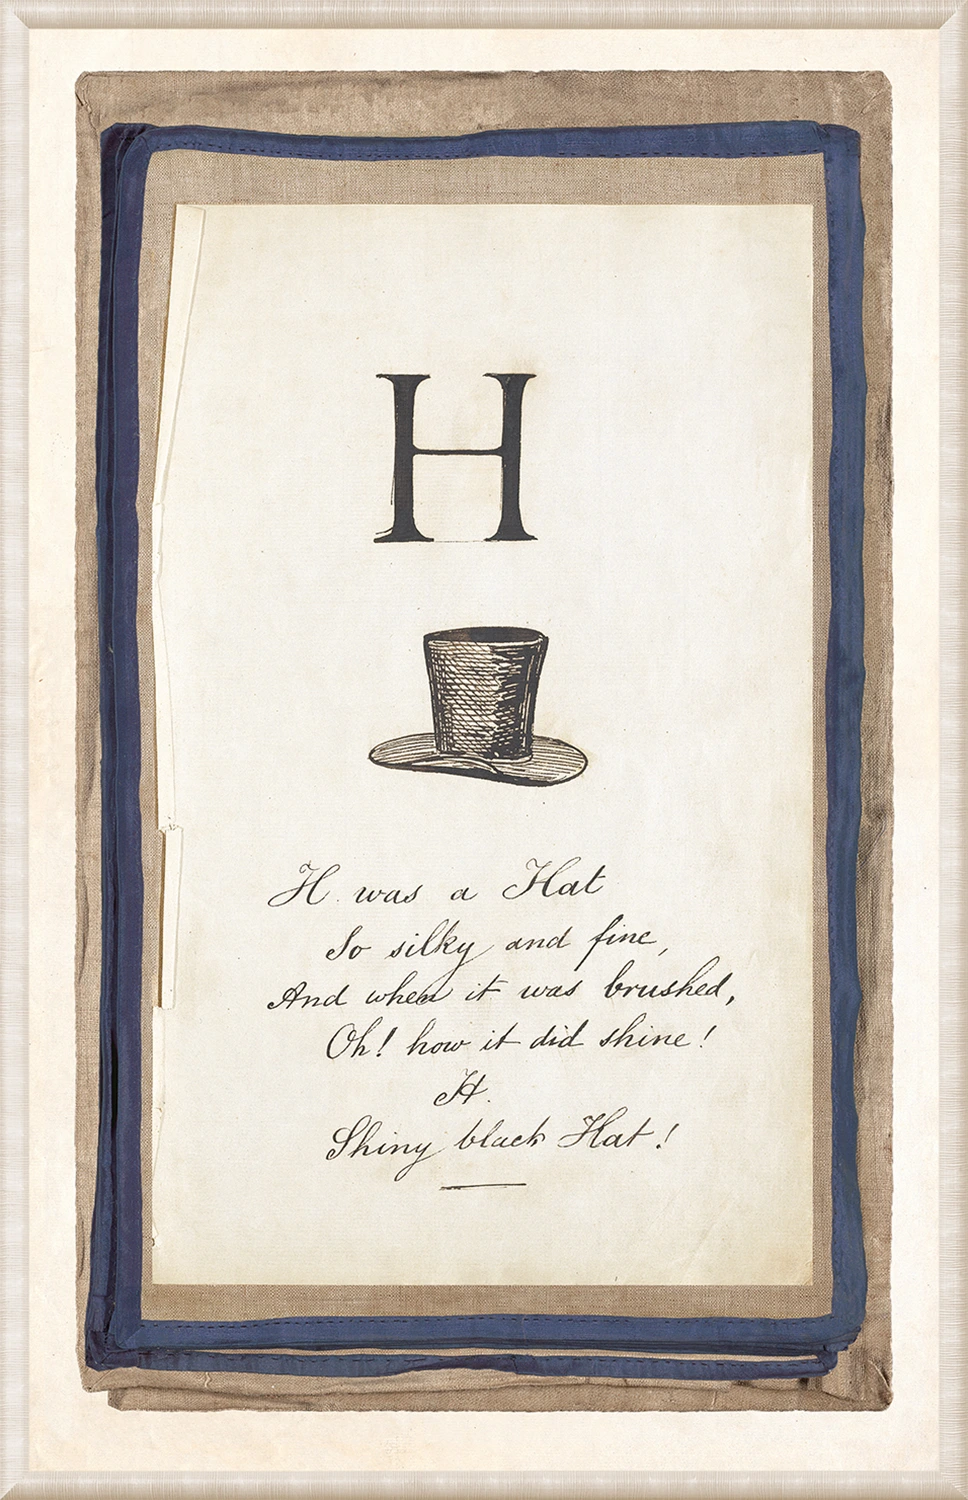 H
H was a Hat
So silky and fine,
And when it was brushed,
Oh! how it did shine!
H.
Shiny black Hat!